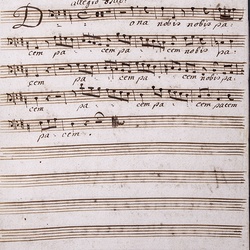 allegro
Dona nobis pa:
cem pa cem pa cem nobis pa
cem pa cem pa cem nobis pa:
cem pa cem pa cem pacem
pacem.